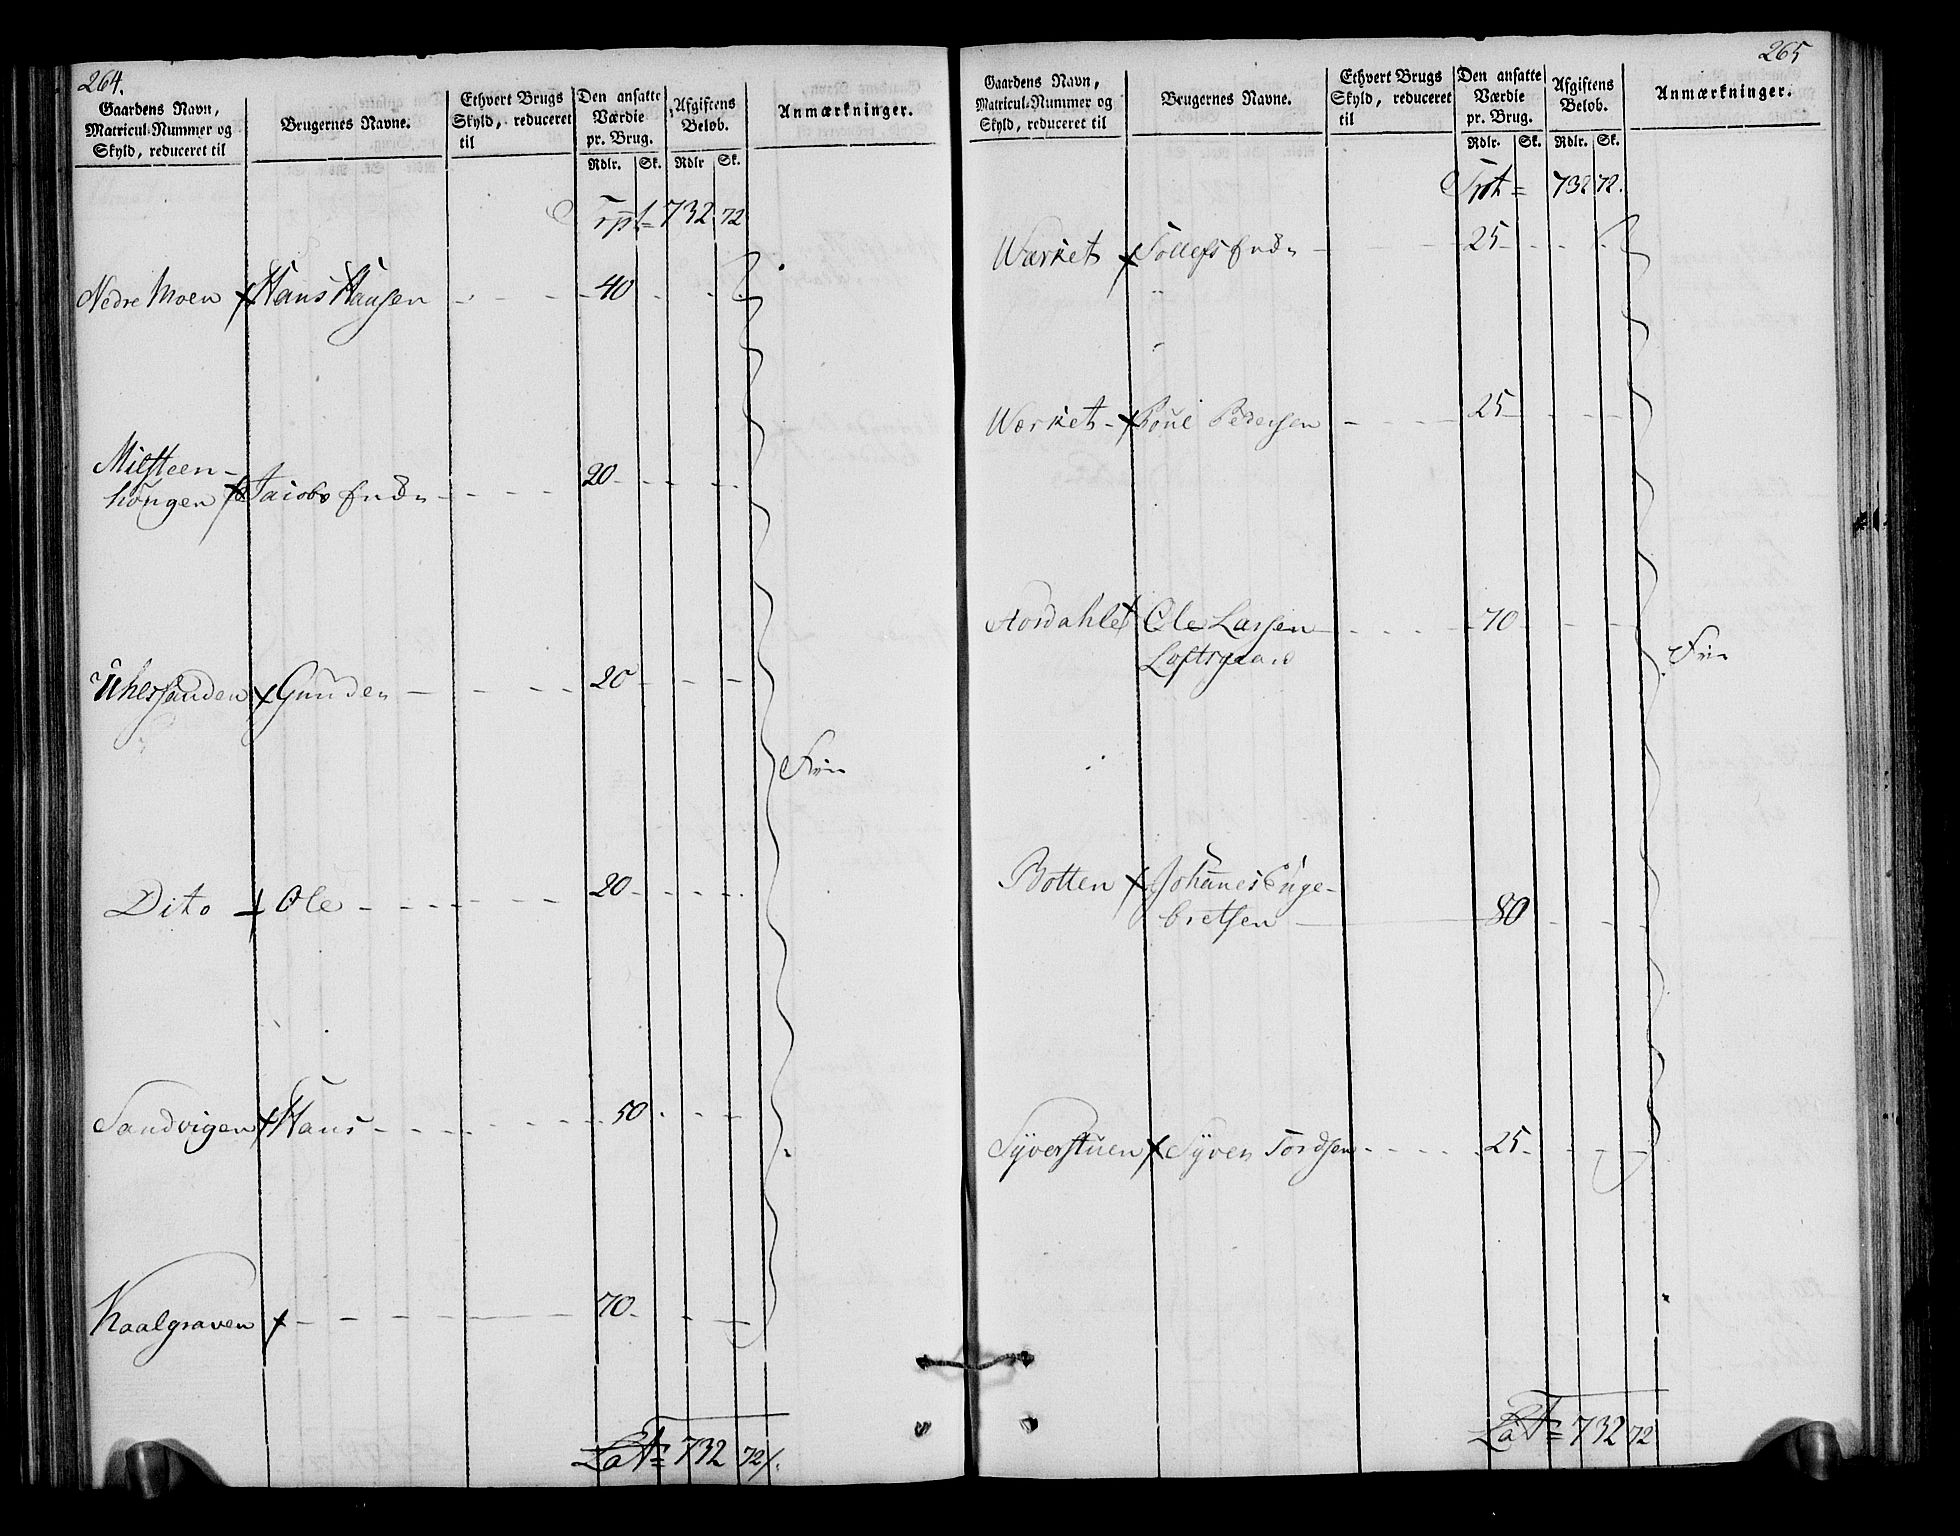 264.
Gaardens Navn, Matricul-Nummer og Skyld, reduceret til | Brugernes Navne. | Ethvert Brugs Skyld, reduceret til | Den ansatte Værdie pr. Brug. Rdlr. Sk. | Afgiftens Belob. Rdlr Sk. | Anmærkninger.
Trpt= 732 72
Nedre Moen x Hans Hansen - - - 40 - - -
Milsteen-
hougen x Jacobs Enke - - - - 20 - - - -
sanden x Gunder - - - - 20 - - -
Frie
Dito x Ole - - - - - 20 - - - -
Sandvigen x Hans - - - - - 50 - - -
Kaalgraven x - - - - - 70 - - -
Lat= 732 72/.
265
Gaardens Navn, Matricul-Nummer og Skyld, reduceret til | Brugernes Navne. | Ethvert Brugs Skyld, reduceret til | Den ansatte Værdie pr. Brug. Rdlr. Sk. | Afgiftens Belob. Rdlr. Sk. | Anmærkninger.
Trpt= 732 72.
Wærket x Tollefs Enke - - - 25 - - -
Værket - x Poul Pedersen - - - 25 - - -
Aordahlet Ole Larsen - - - 70 - - -
Loftsgaard
Frie
Botten x Johannes Enge-
bretsen - 80 - - -
Syverstuen x Syver Tordsen - - - - 25 - - -
Lat= 732 72